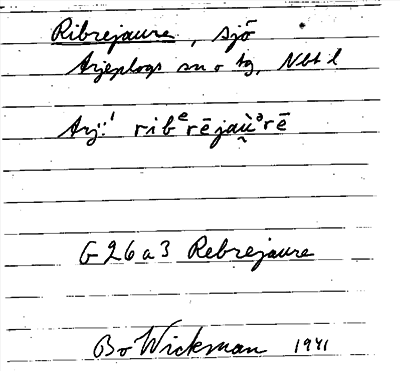 Ribrejaure, sjö
Arjeplogs sn o tg, Nbt l
Arj: ribᵉrējau̯ᵊrē
G 26 a 3 Rebrejaure
Bo Wickman 1941